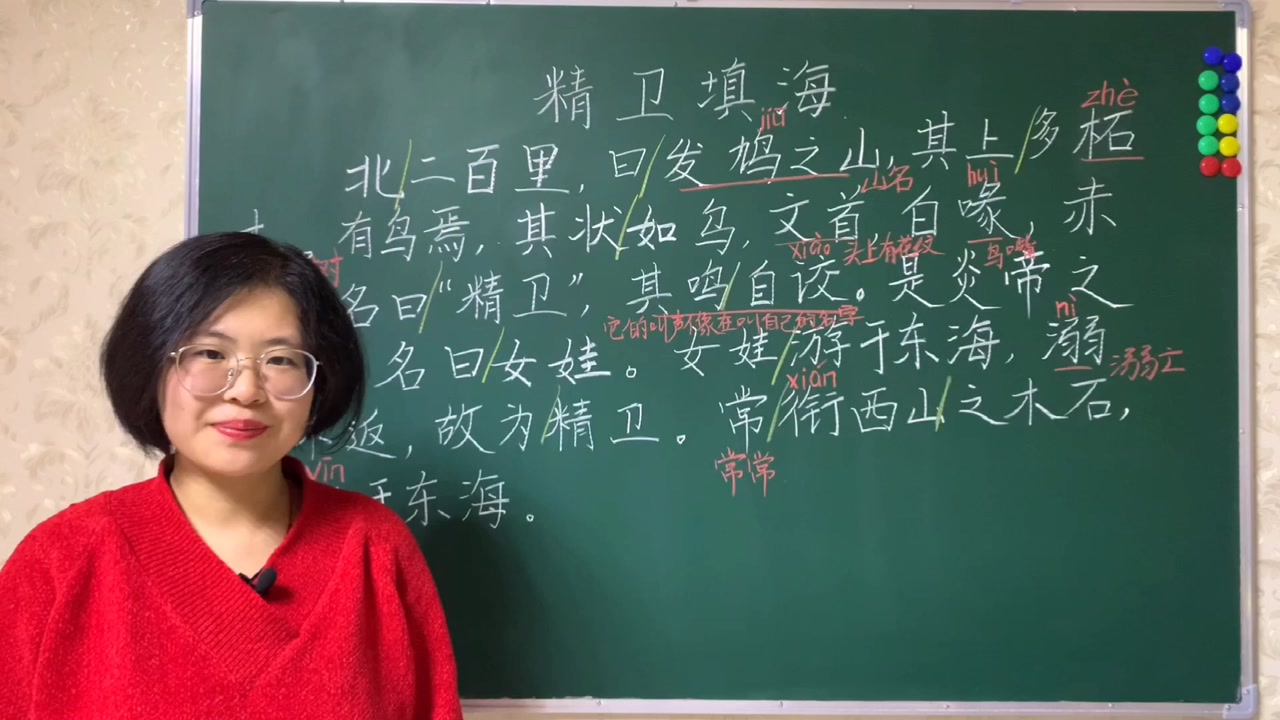 精卫填海
jiū
zhè
北/二百里，曰/发鸠之山，其上/多柘
山名
huì
有鸟焉，其状/如乌，文首，白喙，赤
xiáo
头上有花纹
鸟嘴
对
名曰/“精卫”，其鸣/自詨。是炎帝之
它的叫声像在叫自己的名字
nì
名曰/女娃。女娃/游于东海，溺
溺亡
xián
返，故为/精卫。常/衔西山/之木石，
常常
yīn
于东海。